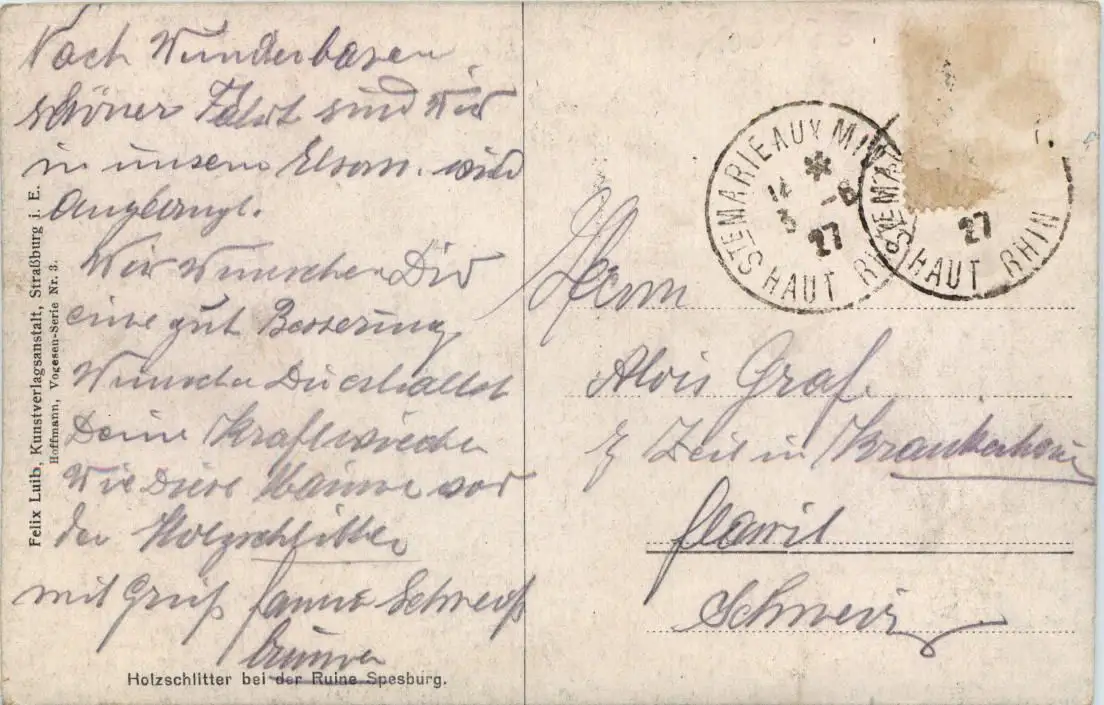 Nach Wunderbaren
schöner Fahrt sind Wir
in unsern Elsass wied
Anglangt.
Wir Wunschen Dir
eine gut Besserung
Wunschen Du erhaltest
Deine Kraft wieder
Wie Diese Männer vor
der Holzschlitten
mit Gruß
Holzschlitter bei der Ruine Spesburg.
Felix Luib, Kunstverlagsanstalt, Straßburg i. E.
Hoffmann, Vogesen-Serie Nr. 3.
STE MARIE AUX MI
14 * -8
3 27
HAUT RHIN
STE MA
27
HAUT RHIN
Herrn
Alois Graf
z Zeit in Krankenhaus
flawil
Schweiz